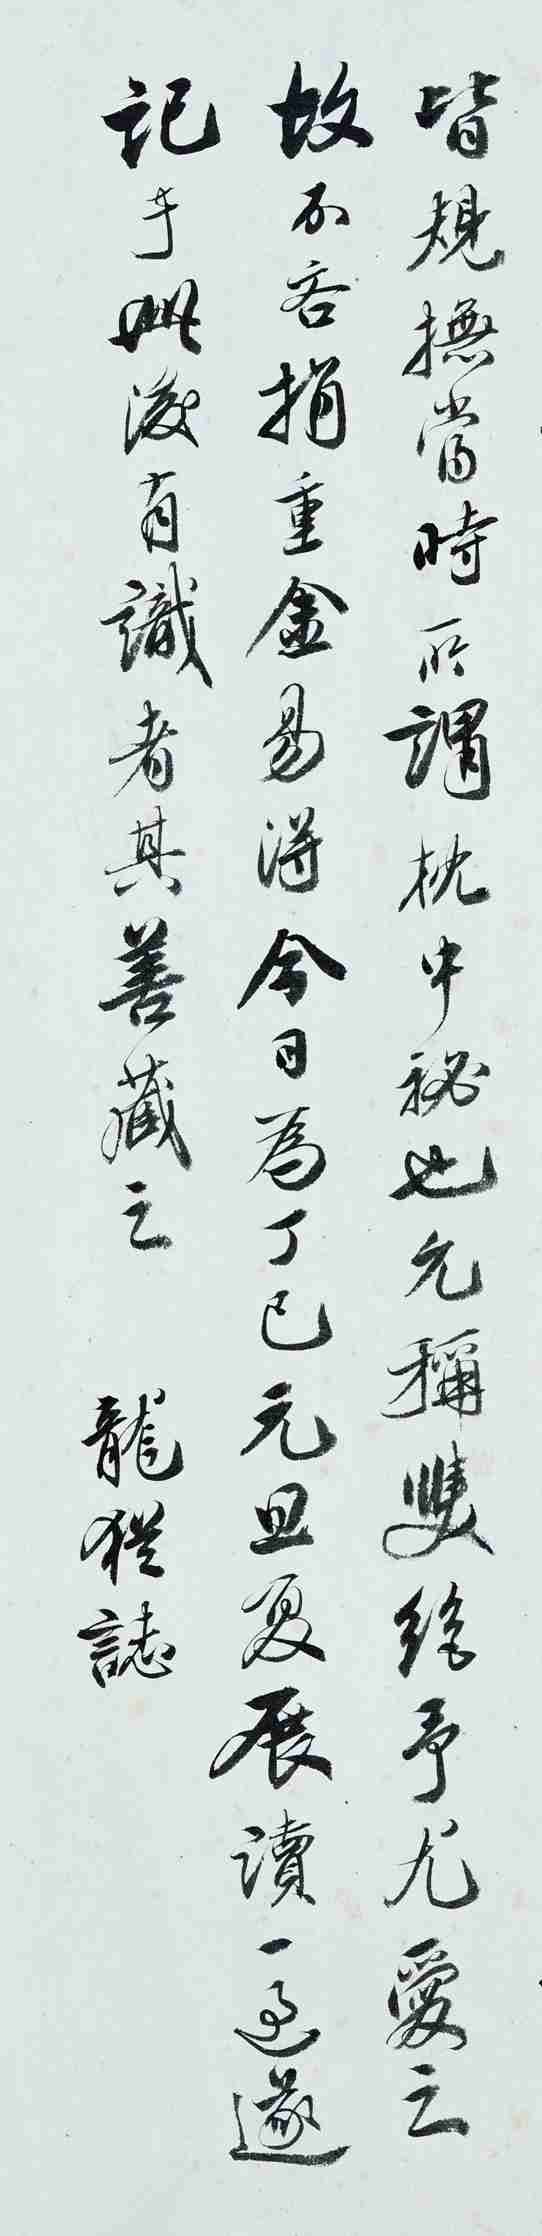 皆規橅當時所謂枕中祕也允稱雙絶予尤愛之
故不吝捐重金易得今日為丁巳元旦夏展讀一過遂
記于此後有識者其善藏之 龍猶誌